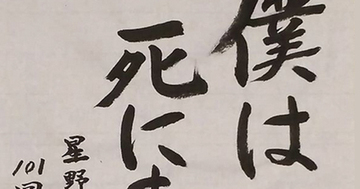 僕は
死にま
星野
101回